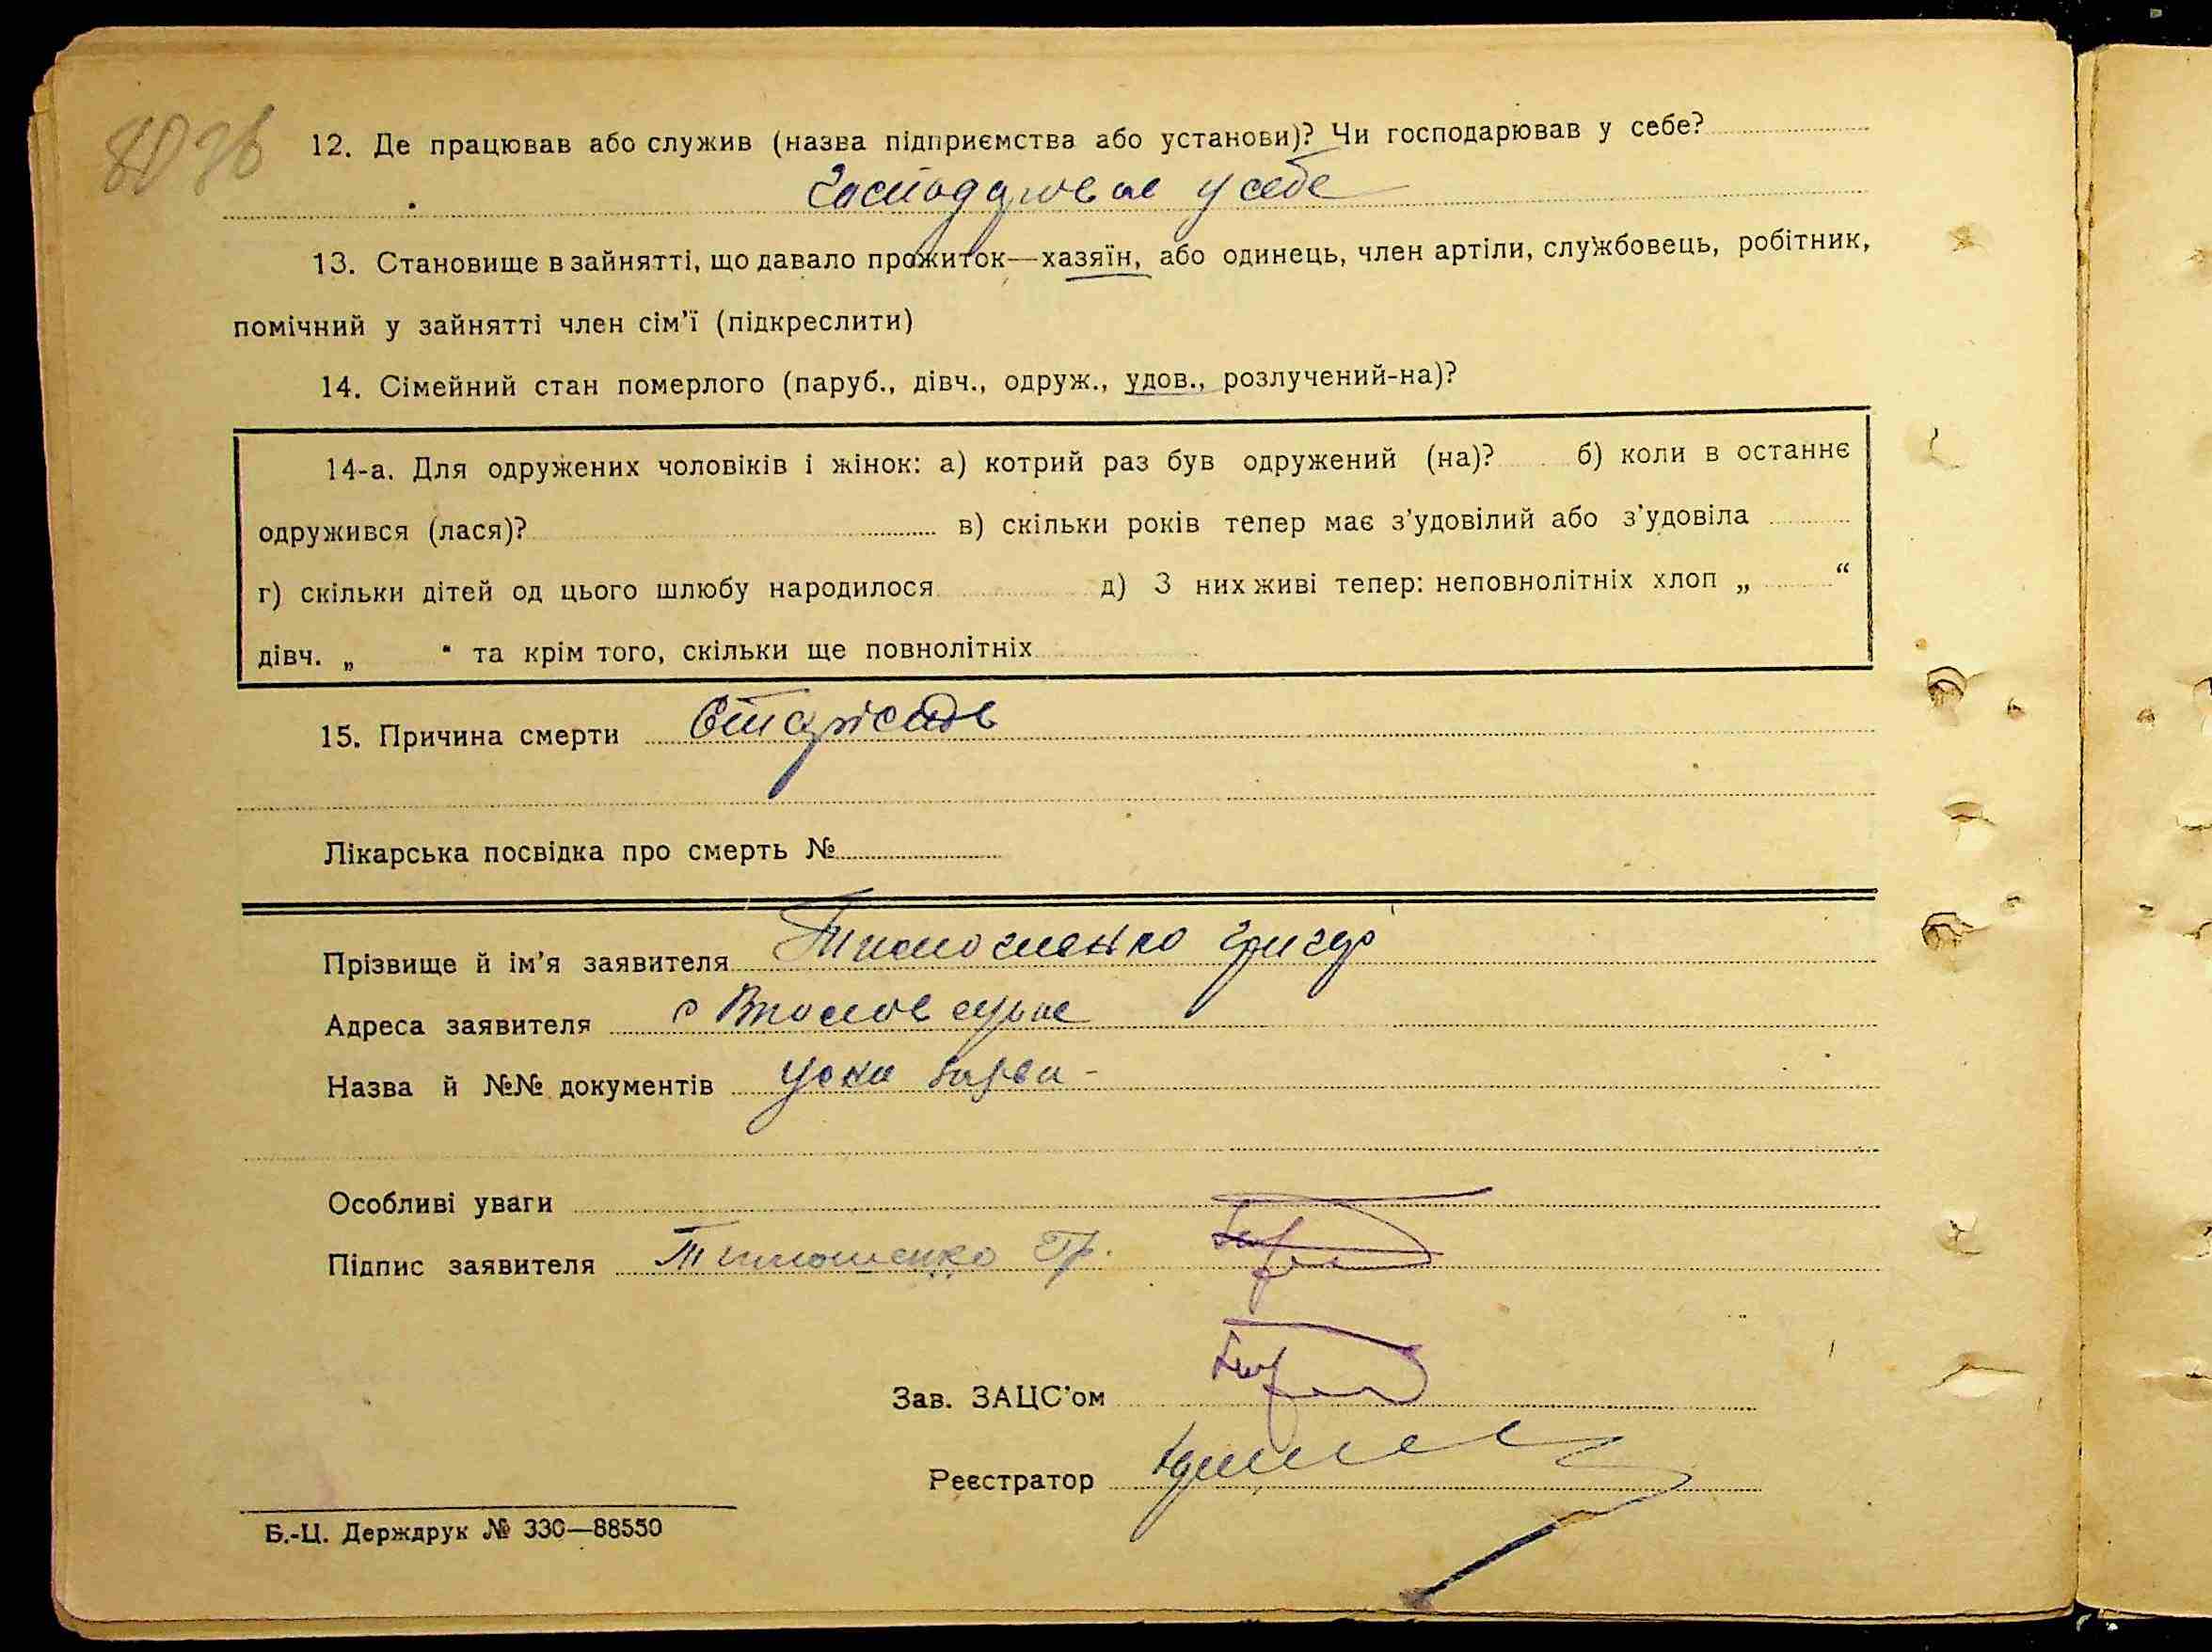 12. Де працював або служив (назва підприємства або установи)? Чи господарював у себе?
Господарював у себе
13. Становище в зайнятті, що давало прожиток—хазяїн, або одинець, член артіли, службовець, робітник,
помічний у зайнятті член сім'ї (підкреслити)
14. Сімейний стан померлого (паруб., дівч., одруж., удов., розлучений-на)?
14-а. Для одружених чоловіків і жінок: а) котрий раз був одружений (на)? б) коли в останнє
одружився (лася)? в) скільки років тепер має з'удовілий або з'удовіла
г) скільки дітей од цього шлюбу народилося д) З них живі тепер: неповнолітніх хлоп „ “
дівч. „ “ та крім того, скільки ще повнолітніх
15. Причина смерти Старість
Лікарська посвідка про смерть №
Прізвище й ім'я заявителя Тимошенко Григор
Адреса заявителя с
Назва й №№ документів Усна заява -
Особливі уваги
Підпис заявителя Тимошенко Гр.
Зав. ЗАЦС'ом
Реєстратор
Б.-Ц. Держдрук № 330—88550